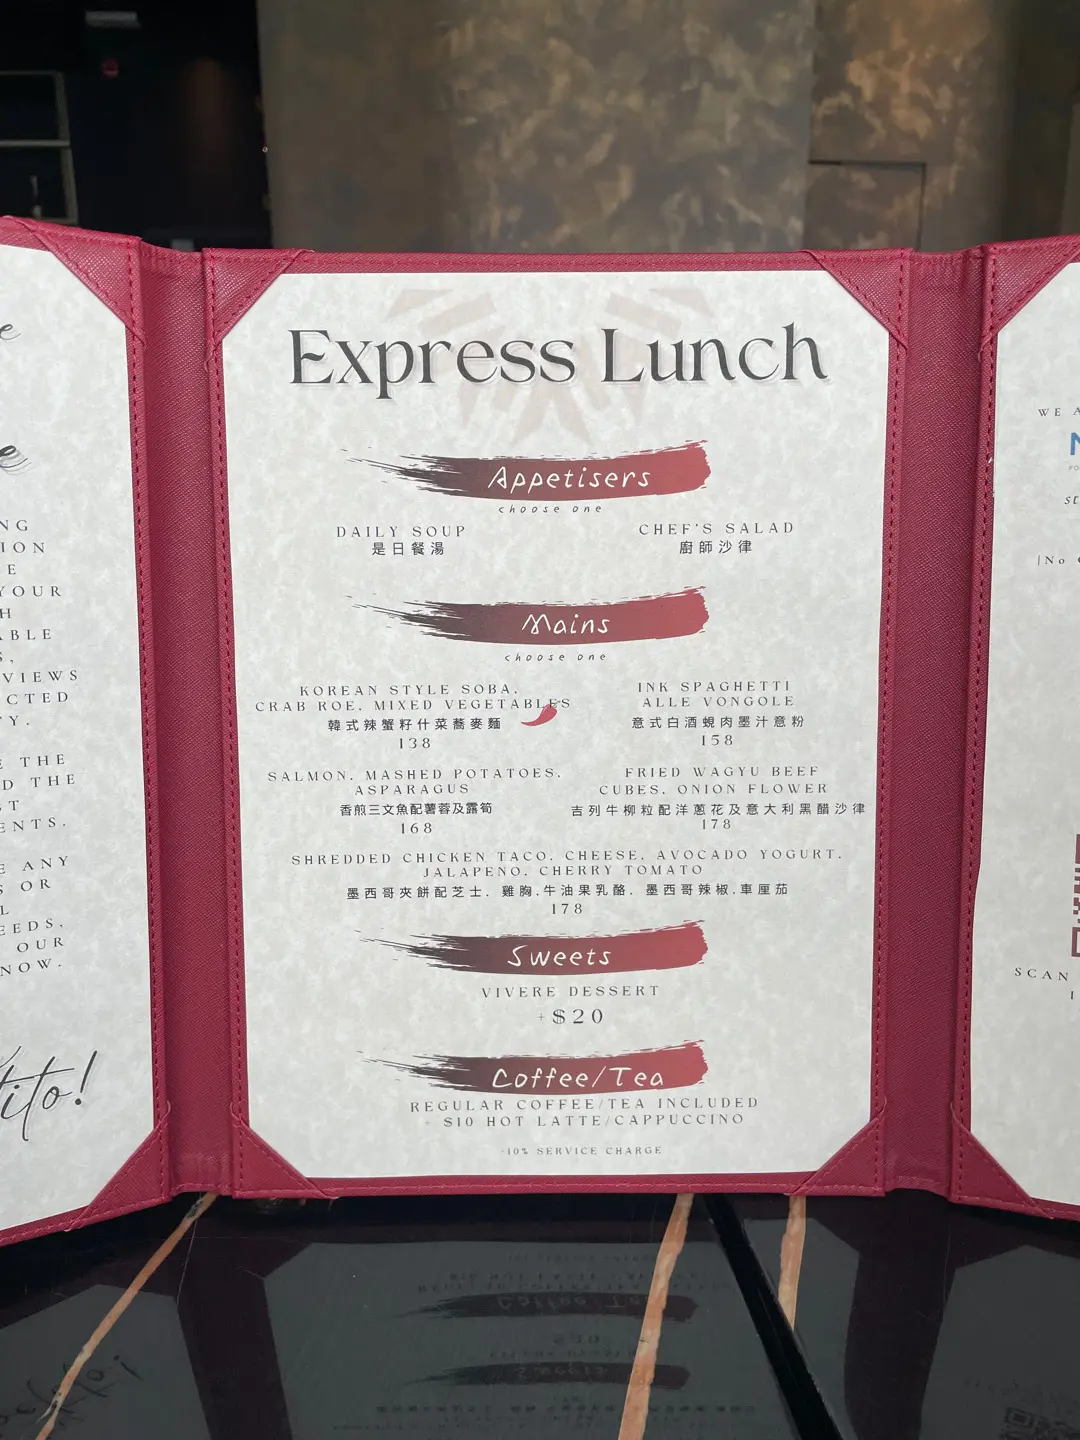 e
e
NG
ION
E
YOUR
H
ABLE
S,
VIEWS
CTED
TY.
E THE
D THE
ST
ENTS.
E ANY
S OR
L
EEDS,
OUR
NOW.
tito!
Express Lunch
Appetisers
choose one
DAILY SOUP
是日餐湯
CHEF'S SALAD
廚師沙律
Mains
choose one
KOREAN STYLE SOBA,
CRAB ROE, MIXED VEGETABLES
韓式辣蟹籽什菜蕎麥麵
138
INK SPAGHETTI
ALLE VONGOLE
意式白酒蜆肉墨汁意粉
158
SALMON, MASHED POTATOES,
ASPARAGUS
香煎三文魚配薯蓉及露筍
168
FRIED WAGYU BEEF
CUBES, ONION FLOWER
吉列牛柳粒配洋蔥花及意大利黑醋沙律
178
SHREDDED CHICKEN TACO, CHEESE, AVOCADO YOGURT,
JALAPENO, CHERRY TOMATO
墨西哥夾餅配芝士, 雞胸,牛油果乳酪, 墨西哥辣椒,車厘茄
178
Sweets
VIVERE DESSERT
+$20
Coffee/Tea
REGULAR COFFEE/TEA INCLUDED
+ $10 HOT LATTE/CAPPUCCINO
+10% SERVICE CHARGE
WE A
FO
SE
|No
SCAN
I